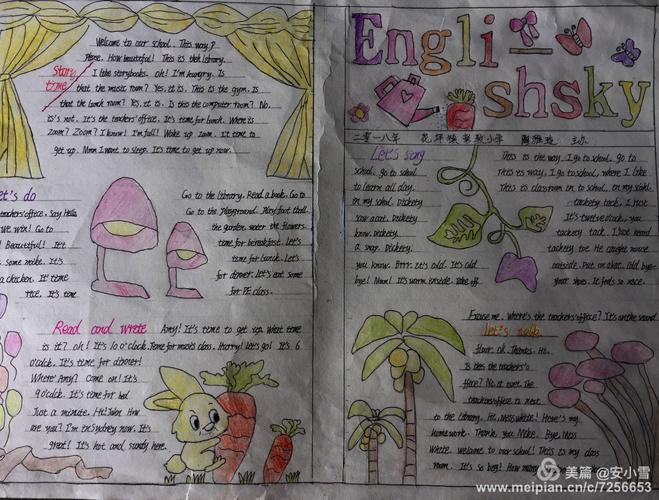 Welcome to our school. This way?
Please. How beautiful! This is the library.
Story
time
I like storybooks. oh! I'm hungry. Is
that the music room? Yes, it is. This is the gym. Is
that the lunch room? Yes, it is. Is this the computer room? No,
is's not. It's the teachers' office. It's time for lunch. Where is
Zoom? Zoom? I know! I'm full! Wake up Zoom. It time to
get up. Mmm I want to sleep. It's time to get up now.
et's do
teachers' office. Say Hello
we win! Go to
! Beautiful! Let
some make. It's
chicken. It time
rice. It's time
Go to the library. Read a book. Go to
Go to the playground. Play foot ball.
the garden. water the flowers.
time for breakfast. Let's
time for lunch. Let's
for dinner. Let's eat some
for PE class.
Read and write
Amy! It's time to get up. What time
is it? Oh! It's 10 o'clock. Time for music class. Hurry! Let's go! It's 6
o'clock. It's time for dinner!
Where Amy? Come on! It's
9 o'clock. It's time for bed
Just a minute. Hi! John. How
are you? I'm in Sydney now. It's
great! It's hot and sunny here.
Engli
shsky
二零一八年 主办
Let's sing
school, go to school
to learn all day.
on my school. Dickety
your coat. Dickety
know. Dickety
a map. Dickety
you know. Brrr. It's cold. It's cold
bye! Mmm! It's warm inside. Take off
This is the way. I go to school, go to
This is way, I go to school, where I like
This is classroom in to school, on my school.
tackety tock, I must
It's twelve o'clock, you
tackety tock. I had heard
tackety toe. He caught mouse
outside. Put on a hat. Old bye-
your shoes. It feels so nice.
Excuse me. Where's the teachers' office? It's on the second
let's talk
floor. Oh. Thanks. Hi.
Is this the teachers' o
ffice? No, it isn't. The
teachers' office is next
to the library. Hi, Miss White! Here's my
homework. Thank you Mike. Bye, Miss
White. welcome to our school! This is my class
room. It's so big! How many
美篇 @安小雪
www.meipian.cn/c/7256653